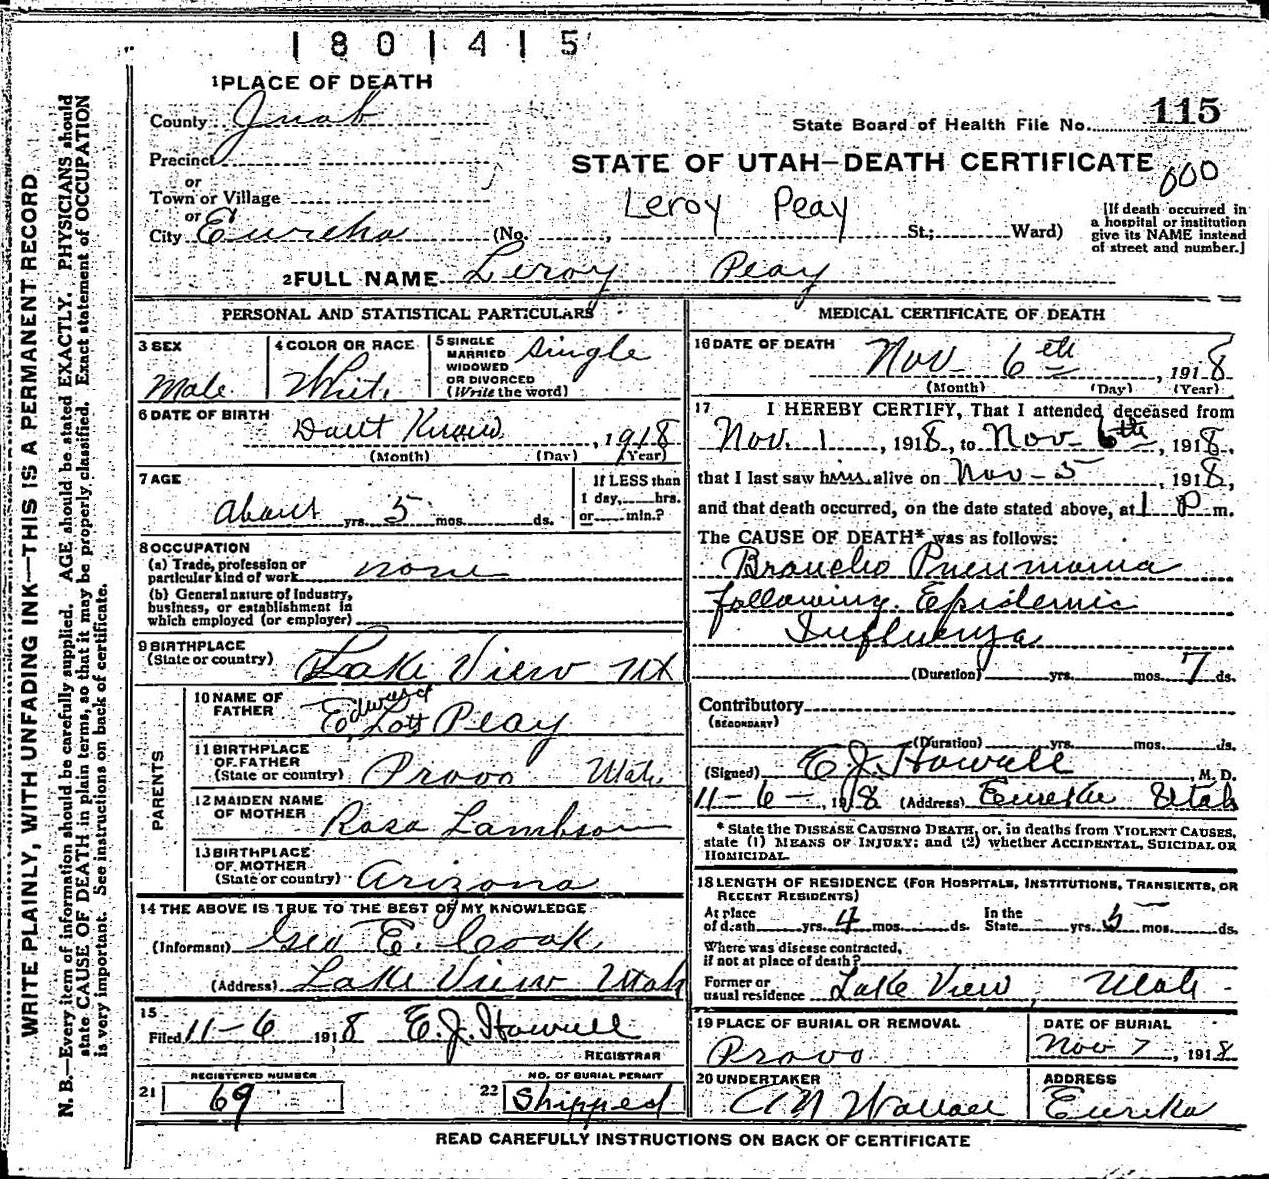 1801415
1 PLACE OF DEATH
County Juab
State Board of Health File No. 115
Precinct
or
STATE OF UTAH—DEATH CERTIFICATE
000
Town or Village
or
Leroy Peay
[If death occurred in
a hospital or institution
give its NAME instead
of street and number.]
City Eureka (No. , St.; Ward)
2 FULL NAME Leroy Peay
PERSONAL AND STATISTICAL PARTICULARS
3 SEX
Male
4 COLOR OR RACE
White
5 SINGLE
MARRIED
WIDOWED
OR DIVORCED
(Write the word)
Single
6 DATE OF BIRTH
Dont Know , 1918
(Month) (Day) (Year)
7 AGE
about yrs. 5 mos. ds.
If LESS than
1 day, hrs.
or min.?
8 OCCUPATION
(a) Trade, profession or
particular kind of work none
(b) General nature of Industry,
business, or establishment in
which employed (or employer)
9 BIRTHPLACE
(State or country) Lake View UT
PARENTS
10 NAME OF
FATHER Edward Lott Peay
11 BIRTHPLACE
OF FATHER
(State or country) Provo Utah
12 MAIDEN NAME
OF MOTHER Rosa Lambson
13 BIRTHPLACE
OF MOTHER
(State or country) Arizona
14 THE ABOVE IS TRUE TO THE BEST OF MY KNOWLEDGE
(Informant) Geo E. Cook
(Address) Lake View Utah
15
Filed 11-6 1918 E.J. Howell
REGISTRAR
21 REGISTERED NUMBER
69
22 NO. OF BURIAL PERMIT
Shipped
MEDICAL CERTIFICATE OF DEATH
16 DATE OF DEATH
Nov 6th , 1918
(Month) (Day) (Year)
17 I HEREBY CERTIFY, That I attended deceased from
Nov. 1 , 1918, to Nov- 6th , 1918,
that I last saw him alive on Nov-5 , 1918,
and that death occurred, on the date stated above, at 1 P m.
The CAUSE OF DEATH* was as follows:
Broncho Pneumonia
following Epidemic
Influenza
(Duration) yrs. mos. 7 ds.
Contributory
(SECONDARY)
(Duration) yrs. mos. ds.
(Signed) E.J. Howell , M. D.
11-6- , 1918 (Address) Eureka Utah
* State the DISEASE CAUSING DEATH, or, in deaths from VIOLENT CAUSES,
state (1) MEANS OF INJURY; and (2) whether ACCIDENTAL, SUICIDAL OR
HOMICIDAL.
18 LENGTH OF RESIDENCE (FOR HOSPITALS, INSTITUTIONS, TRANSIENTS, OR
RECENT RESIDENTS)
At place
of death yrs. 4 mos. ds. In the
State yrs. 5 mos. ds.
Where was disease contracted,
if not at place of death?
Former or
usual residence Lake View, Utah
19 PLACE OF BURIAL OR REMOVAL
Provo
DATE OF BURIAL
Nov 7 , 1918
20 UNDERTAKER
A N Wallace
ADDRESS
Eureka
READ CAREFULLY INSTRUCTIONS ON BACK OF CERTIFICATE
WRITE PLAINLY, WITH UNFADING INK—THIS IS A PERMANENT RECORD
N. B.—Every item of information should be carefully supplied. AGE should be stated EXACTLY. PHYSICIANS should
state CAUSE OF DEATH in plain terms, so that it may be properly classified. Exact statement of OCCUPATION
is very important. See instructions on back of certificate.